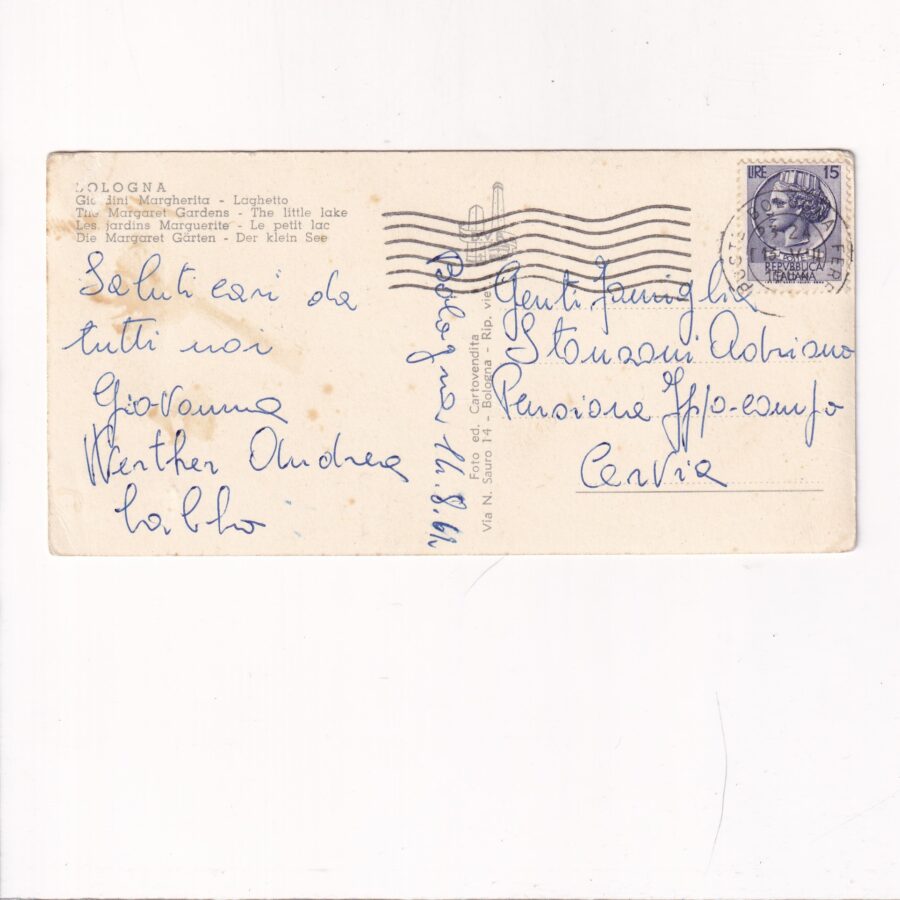 BOLOGNA
Giardini Margherita - Laghetto
The Margaret Gardens - The little lake
Les jardins Marguerite - Le petit lac
Die Margaret Gärten - Der klein See
Saluti cari da
tutti noi
Giovanna
Werther Andrea
Bologna 14.8.62
Foto ed. Cartovendita
Via N. Sauro 14 - Bologna - Rip. vie
LIRE 15
POSTE
REPVBBLICA
ITALIANA
Gent. Famiglia
Stanzani Adriano
Pensione Ippocampo
Cervia